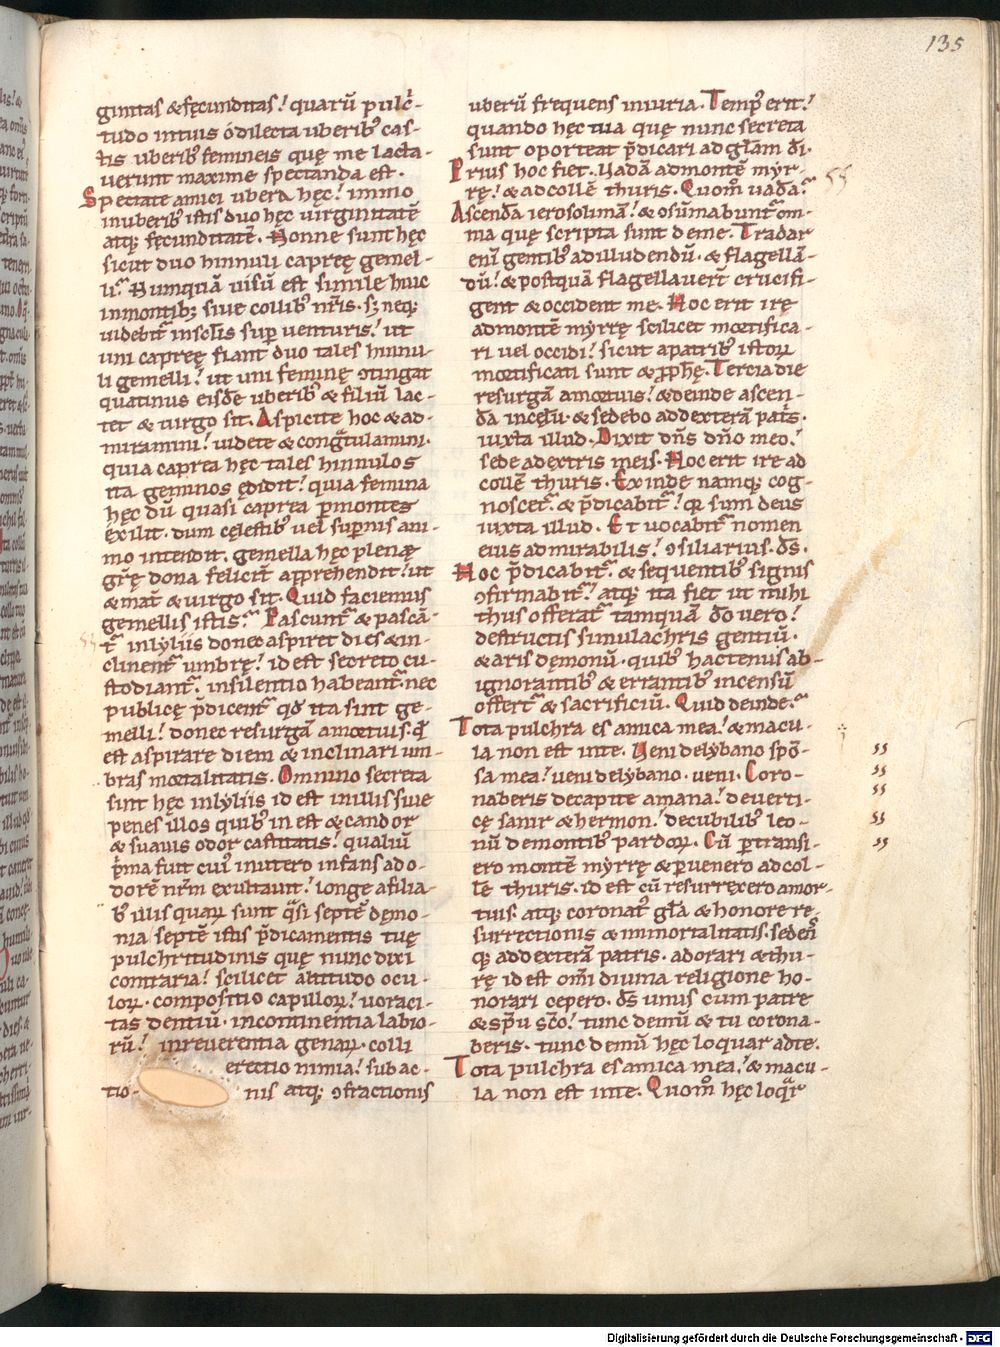 135
ginitas & fęcunditas! quarū pulc̄-
tudo intuis ódilecta uberibꝰ cas-
tis uberibꝰ femineis quę me lacta-
uerunt maxime spectanda est.
Spectate amici ubera hęc! immo
inuberibꝰ istis duo hęc uirginitatē
atqꝫ fęcunditatē. Nonne sunt hęc
sicut duo hinnuli capreę gemel-
li? Nunquā uisū est simile huic
inmontibꝫ siue collibꝰ nr̄is. sꝫ neqꝫ
uidebit᷑ insclis suꝑ uenturis! ut
uni capreę fiant duo tales hinnu-
li gemelli! ut uni feminę ꝯtingat
quatinus eisdē uberibꝰ & filiū lac-
tet & uirgo sit. Aspicite hoc & ad-
miramini! uidete & congᷓtulamini.
quia caprea hęc tales hinnulos
ita geminos ędidit! quia femina
hęc dū quasi caprea ꝑmontes
exilit. dum cęlestibꝰ uel suꝑnis ani-
mo intendit. gemella hęc plenę
gr̄ę dona felicit̄ apprehendit! ut
& mat̄ & uirgo sit. Quid faciemus
gemellis istis? Pascunt᷑ & pascā-
t᷑ inlyliis donec aspiret dies & in-
clinent᷑ umbrę! id est secreto cu-
stodiant᷑. insilentio habeant᷑. nec
publicę p̄dicent᷑ qđ ita sint ge-
melli! donec resurgā amortuis. qđ
est aspirare diem & inclinari um-
bras mortalitatis. Omnino secreta
sint hęc inlyliis id est inillis siue
penes illos quibꝰ in est & candor
& suauis odor castitatis! qualiū
p̄ma fuit cuiꝰ inutero infans ado-
dorē nr̄m exultauit! longe afilia-
bꝰ illis quaꝝ sunt qᷓsi septē dęmo-
nia septē istis p̄dicamentis tuę
pulchritudinis quę nunc dixi
contraria! scilicet altitudo ocu-
loꝝ. compositio capilloꝝ! uoraci-
tas dentiū. incontinentia labio-
rū! inreuerentia genaꝝ. colli
erectio nimia! subac-
tio- nis atqꝫ ꝯfractionis
uberū frequens iniuria. Tempꝰ erit!
quando hęc tua quę nunc secreta
sunt oporteat p̄dicari ad glām dī.
Prius hoc fiet. Uadā admontē myr-
rę! & adcollē thuris. Quom̄ uadā?
Ascendā ierosolimā! & ꝯsūmabunt᷑ om-
nia quę scripta sunt deme. Tradar
enī gentibꝰ adiludendū. & flagellā-
dū! & postquā flagellauerīt crucifi-
gent & occident me. Hoc erit irę
admontē myrrę scilicet mortifica-
ri uel occidi! sicut apatribꝰ istoꝝ
mortificati sunt & ꝓph̄ę. Tercia die
resurgā amortuis! & deinde ascen-
dā incęlū. & sedebo addexterā pat̄s.
iuxta illud. Dixit dn̄s dn̄o meo!
sede adextris meis. Hoc erit ire ad
collē thuris. Exinde namqꝫ cog-
noscet᷑. & p̄dicabit᷑! qꝛ sum deus
iuxta illud. Et uocabit᷑ nomen
eius admirabilis! ꝯsiliarius. ds̄.
Hoc p̄dicabit᷑. & sequentibꝰ signis
ꝯfirmabit᷑! atqꝫ ita fiet ut mihi
thus offerat᷑ tamquā dō uero!
destructis simulachris gentiū.
& aris dęmonū. quibꝰ hactenus ab
ignorantibꝰ & errantibꝰ incensū
offert᷑ & sacrificiū. Quid deinde?
Tota pulchra es amica mea! & macu-
la non est inte. Ueni delybano spō-
sa mea! ueni delybano. ueni. Coro-
naberis decapite amana! deuerti-
cę sanir & hermon! decubilibꝰ leo-
nū demontibꝰ pardoꝝ. Cū ꝑtransi-
ero montē myrrę & ꝑuenero adcol-
lē thuris. id est cū resurrexero amor-
tuis. atqꝫ coronatꝰ glā & honore re
surrectionis & immortalitatis. sedeń
qꝫ addexterā patris. adorari & thu-
rę id est om̄i diuina religione ho-
norari cepero. ds̄ unus cum patre
& sp̄u sc̄o! tunc demū & tu corona-
beris. tunc demū hęc loquar adte.
Tota pulchra es amica mea! & macu-
la non est inte. Quom̄ hęc loqᷓr
Digitalisierung gefördert durch die Deutsche Forschungsgemeinschaft - DFG